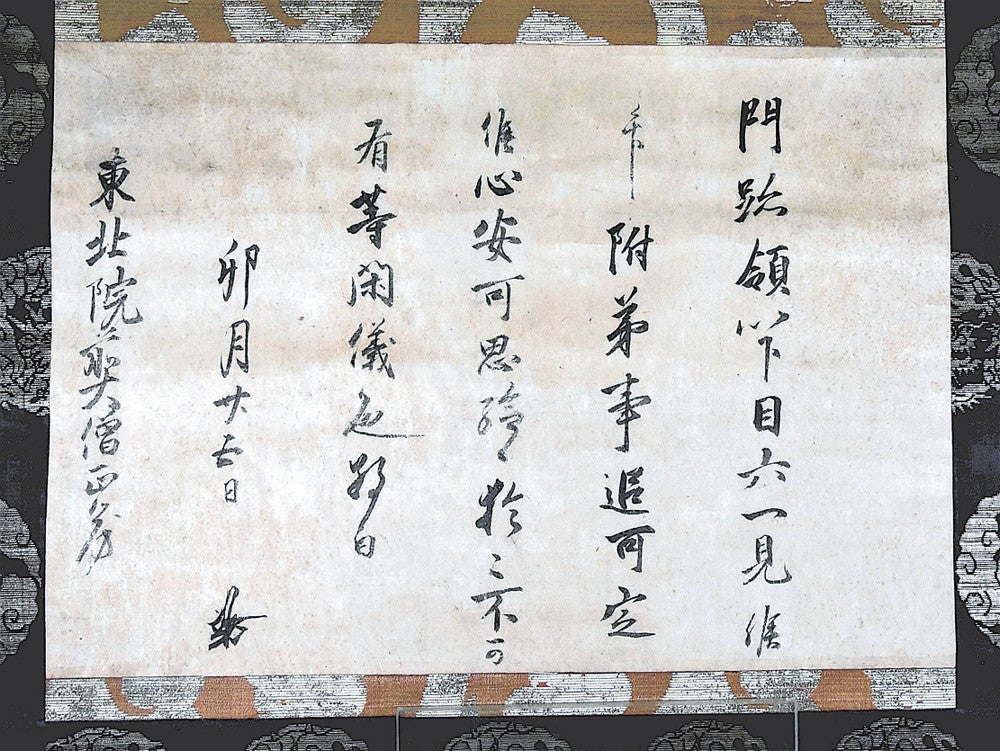 門跡領以下目六一見候
畢附弟事追可定
候心安可思給候於之不可
有等閑儀也敬白
卯月廿五日
東北院僧正御房